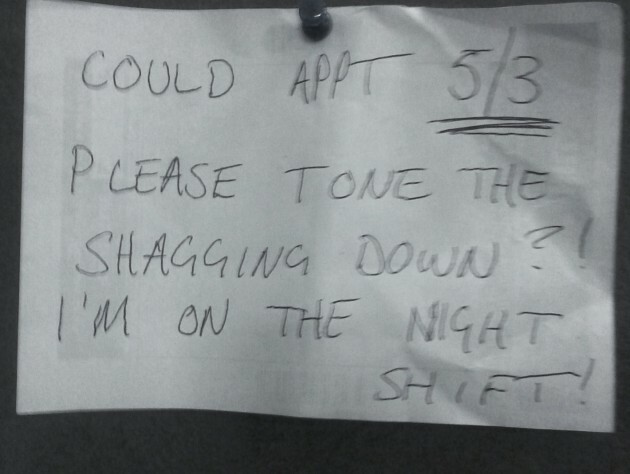 COULD APPT 5/3
PLEASE TONE THE
SHAGGING DOWN?!
I'M ON THE NIGHT
SHIFT!